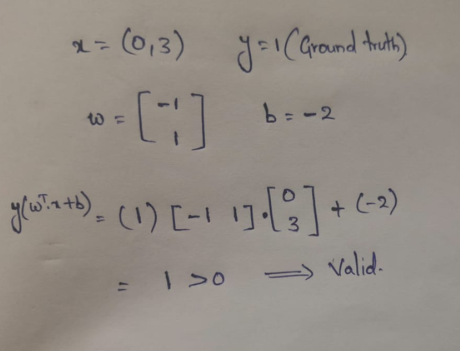 x = (0,3) y = 1 (Ground truth)
w = [-1 1] b = -2
y(wᵀ.x+b) = (1) [-1 1].[0 3] + (-2)
= 1 >0 ⟹ Valid.